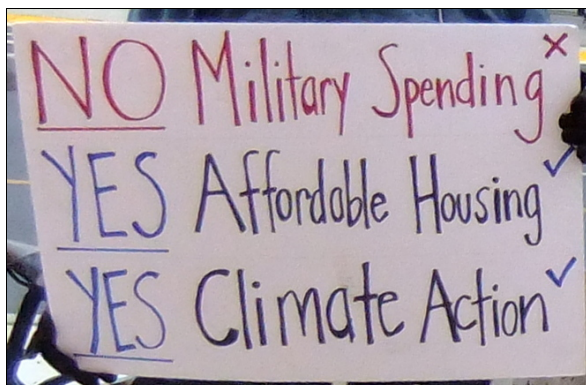 NO Military Spending ✗
YES Affordable Housing ✓
YES Climate Action ✓